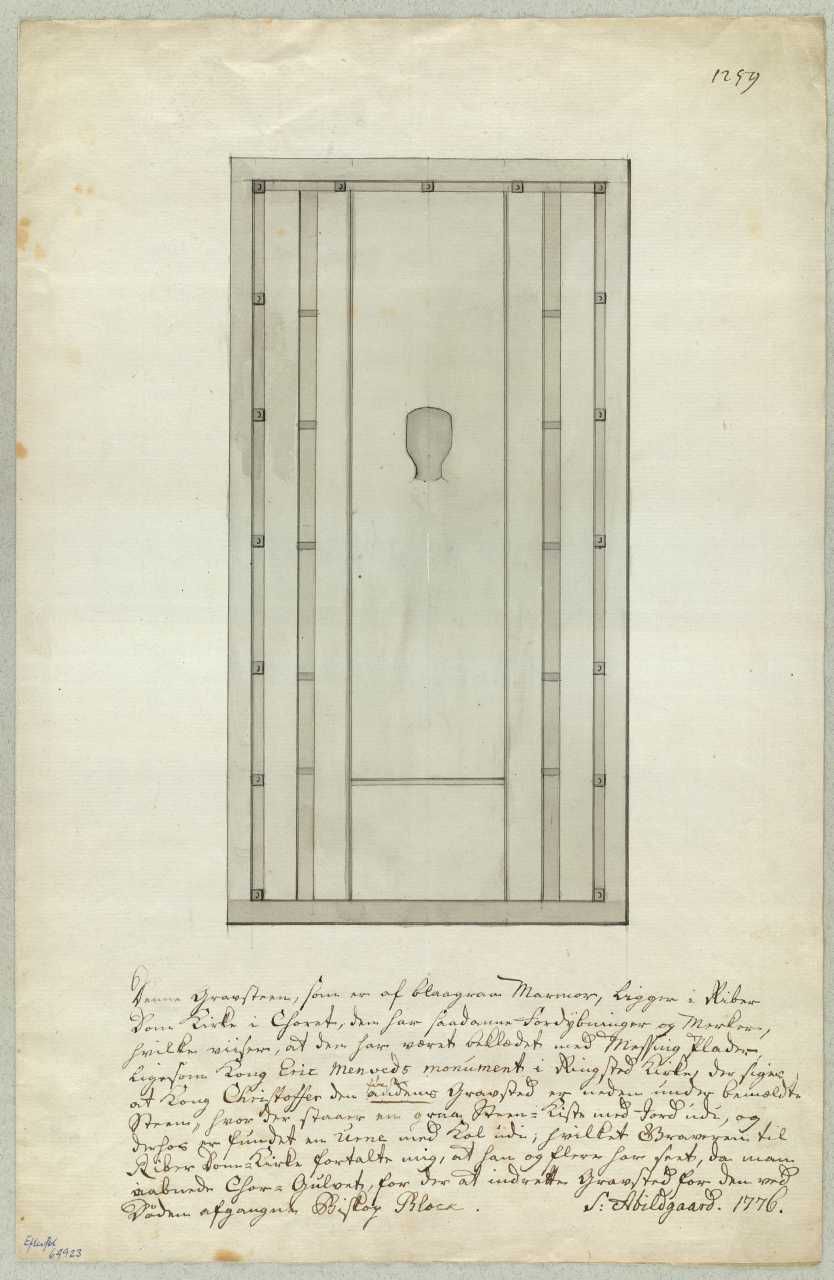 1259
Denne Gravsteen, som er af blaagraa Marmor, Ligger i Riber
Dom Kirke i Choret, den har saadanne Fordybninger og Merker,
hvilke viiser, at den har været beklædet med Messing Plader,
Ligesom Kong Eric Menveds monument i Ringsted Kirke, der siges,
at Kong Christoffer den første
andens Gravsted er neden under bemældte
Steen, hvor der staaer en graa Steen-Kiste med Jord udi, og
derhos er fundet en Urne med Kol udi, hvilket Graveren til
Riber Dom-Kirke fortalte mig, at han og flere har seet, da man
aabnede Chor-Gulvet, for der at indrette Gravsted for den ved
Døden afgangne Biskop Bloch.
S: Abildgaard. 1776.
69923